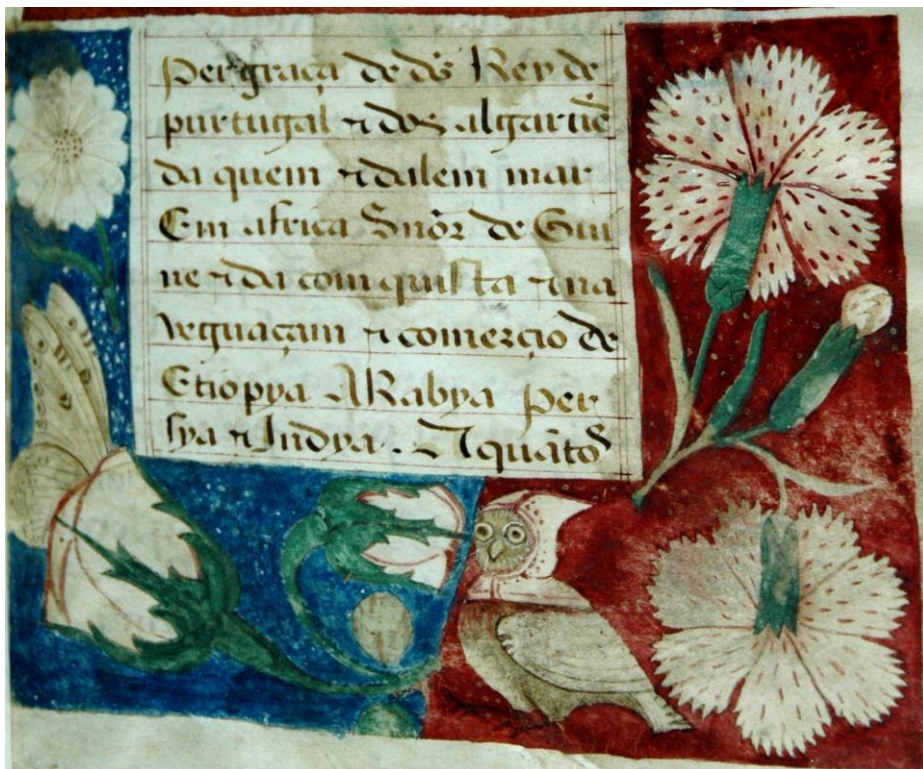 Per graça de dẽs Rey de
purtugal ⁊ dos algarũẽ
da quem ⁊ dalem mar
Em africa Snõr de Gui
ne ⁊ da comquista ⁊ na
veguaçam ⁊ comerçio de
Etiopya ARabya Per
sya ⁊ Jndya. A quãtos